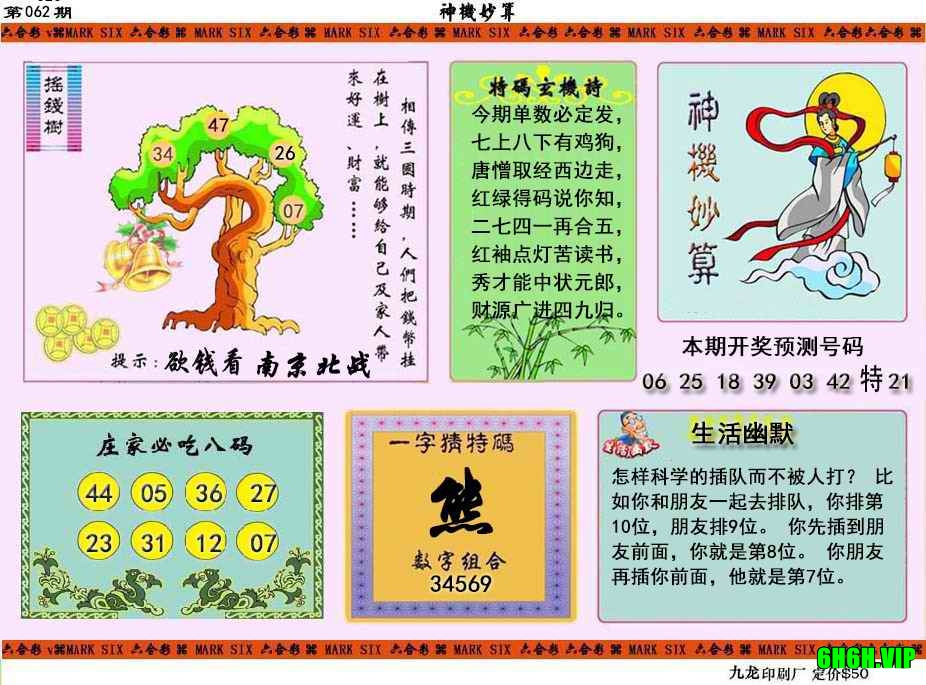 第062期
神機妙算
六合彩 MARK SIX 六合彩 MARK SIX 六合彩 MARK SIX 六合彩 MARK SIX 六合彩 MARK SIX 六合彩 MARK SIX 六合彩 MARK SIX 六合彩
搖錢樹
47
34
26
07
相傳三國時期，人們把錢幣挂
在樹上，就能够给自己及家人带
來好運、財富……
提示：欲钱看 南京北战
特碼玄機詩
今期单数必定发，
七上八下有鸡狗，
唐憎取经西边走，
红绿得码说你知，
二七四一再合五，
红袖点灯苦读书，
秀才能中状元郎，
财源广进四九归。
神機妙算
本期开奖预测号码
06 25 18 39 03 42 特21
庄家必吃八码
44 05 36 27
23 31 12 07
一字猜特碼
熊
数字组合
34569
生活幽默
生活幽默
怎样科学的插队而不被人打？ 比
如你和朋友一起去排队，你排第
10位，朋友排9位。 你先插到朋
友前面，你就是第8位。 你朋友
再插你前面，他就是第7位。
六合彩 MARK SIX 六合彩 MARK SIX 六合彩 MARK SIX 六合彩 MARK SIX 六合彩 MARK SIX 六合彩 MARK SIX 六合彩
6H6H.VIP
九龙印刷厂 定价$50